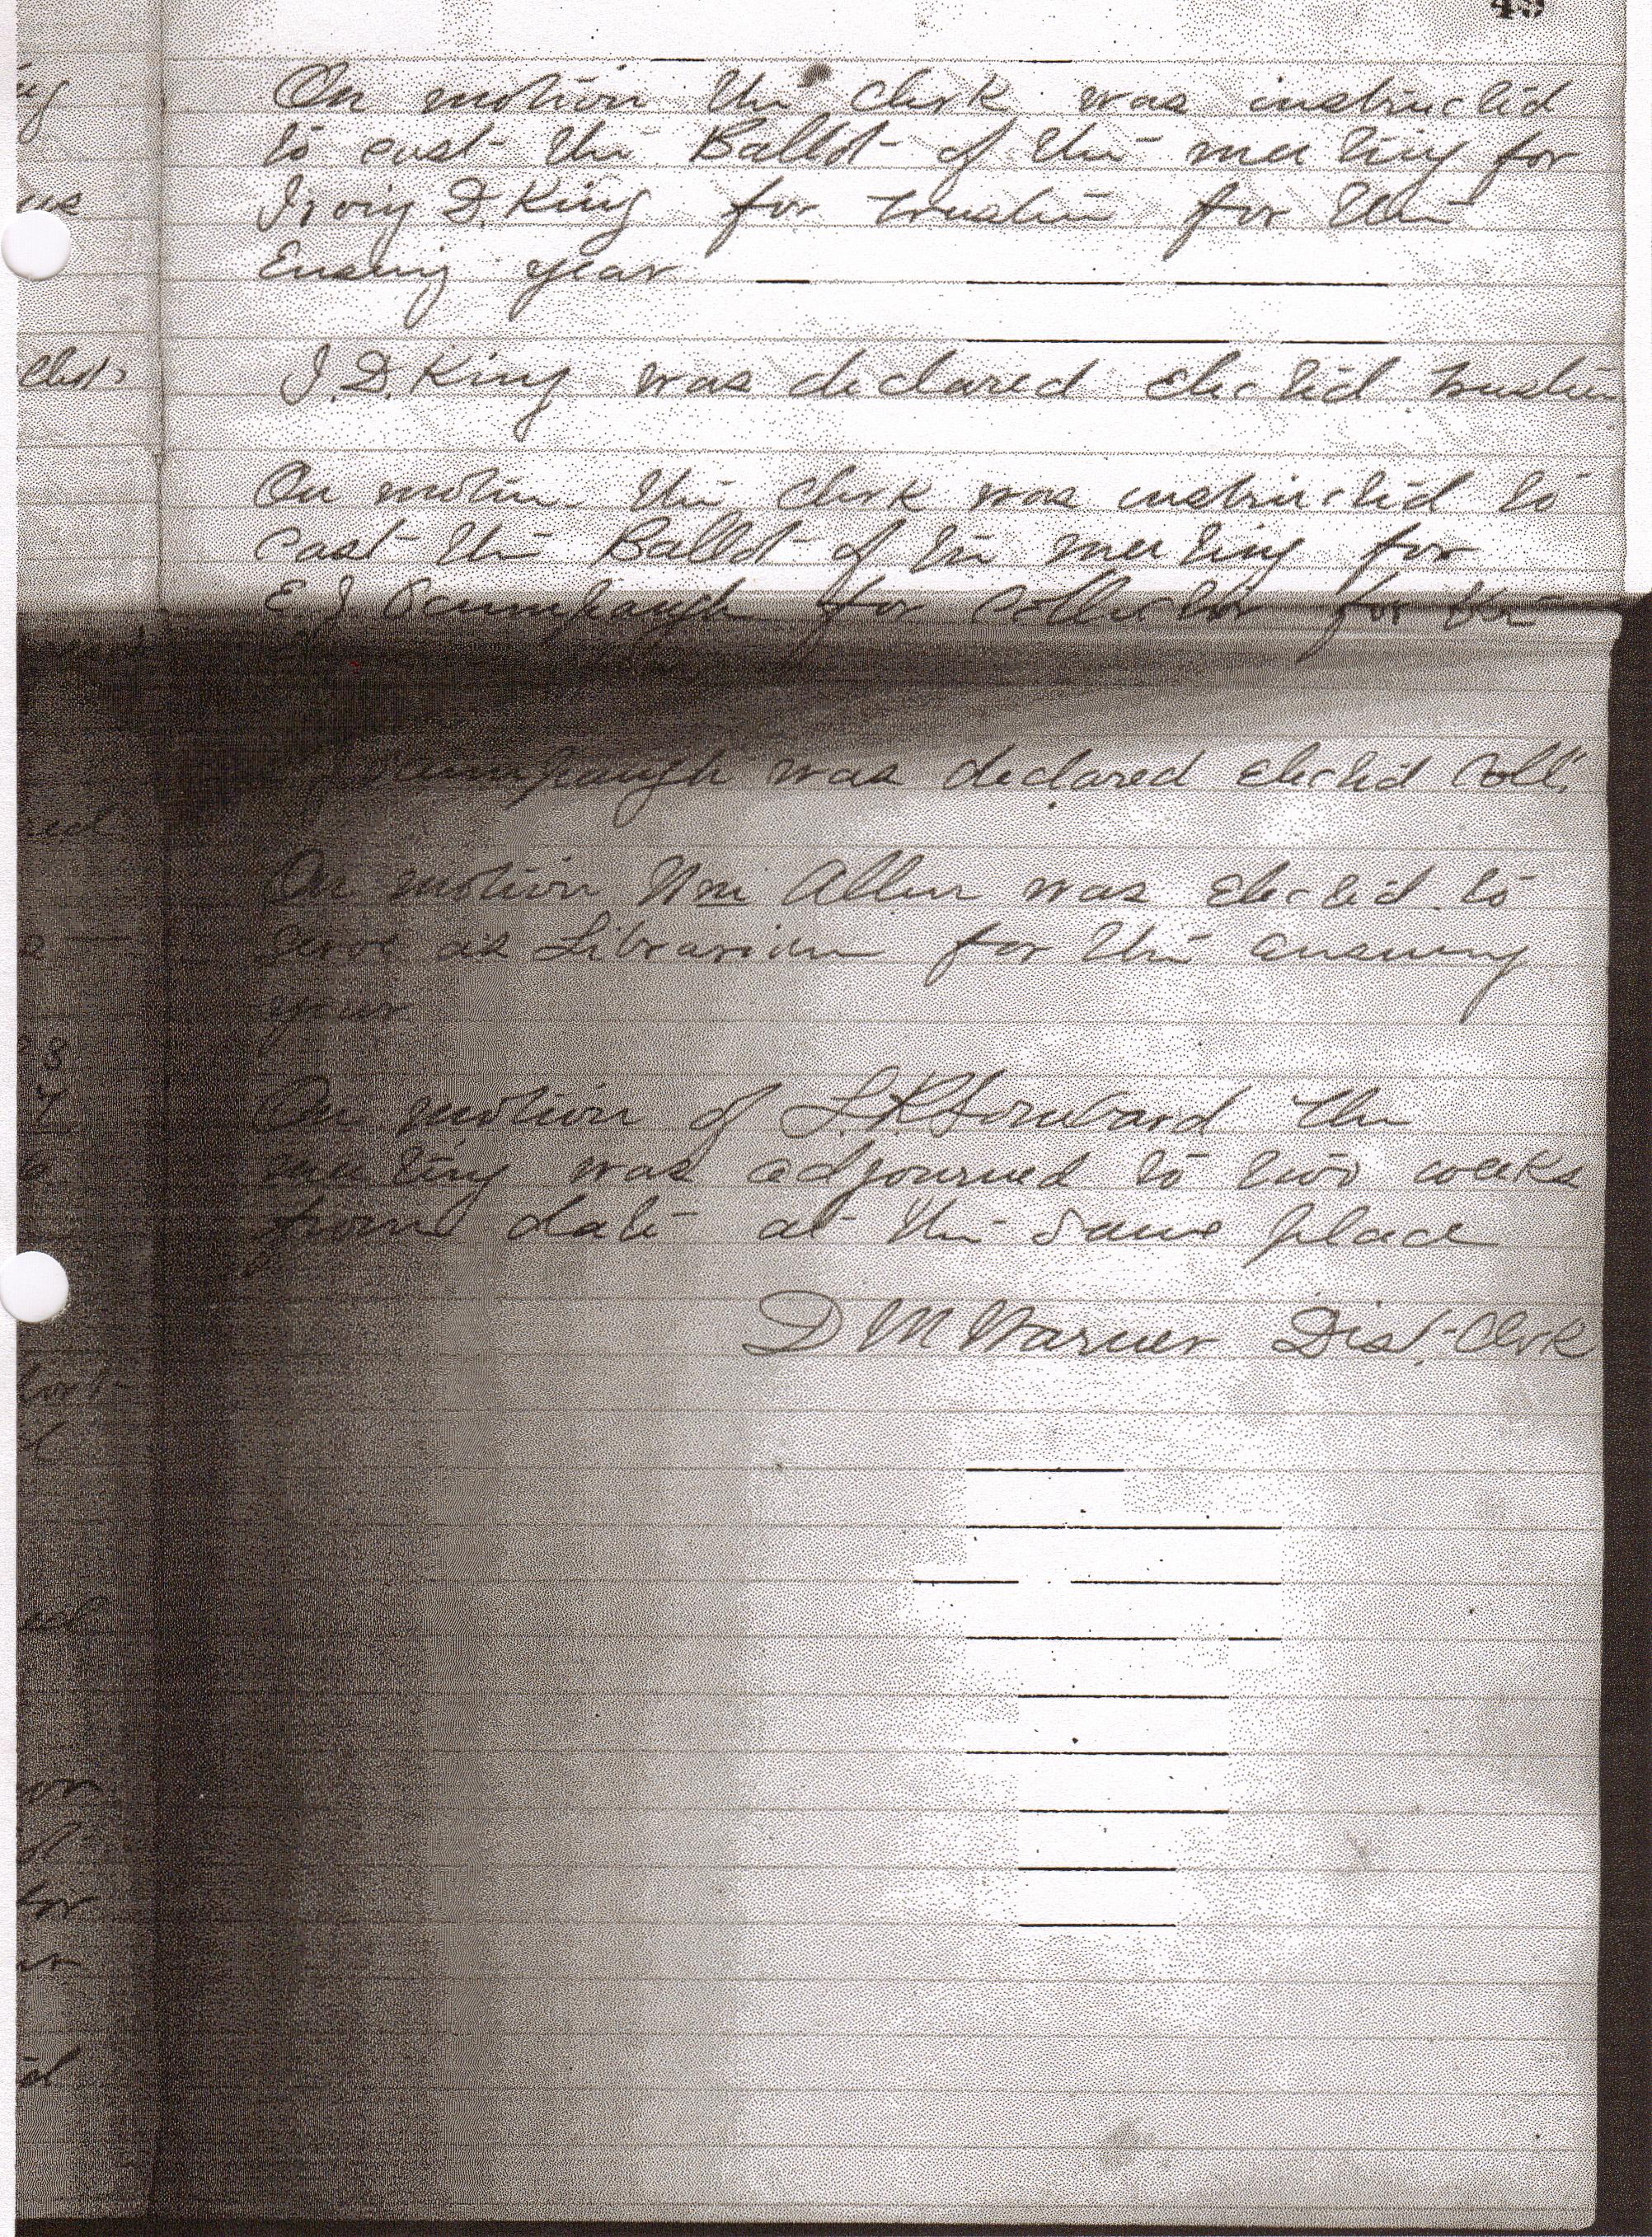 49
On motion the Clerk was instructed
to cast the Ballot of the meeting for
Irving D. King for trustee for the
Ensuing year
I. D. King was declared elected trustee
On motion the Clerk was instructed to
Cast the Ballot of the meeting for
E. J. Ocumpaugh for Collector for the
Ocumpaugh was declared elected Coll.
On motion Wm Allen was elected to
serve as Librarian for the ensuing
year
On motion of the
meeting was adjourned to two weeks
from date at the same place
D M Warner Dist. Clerk